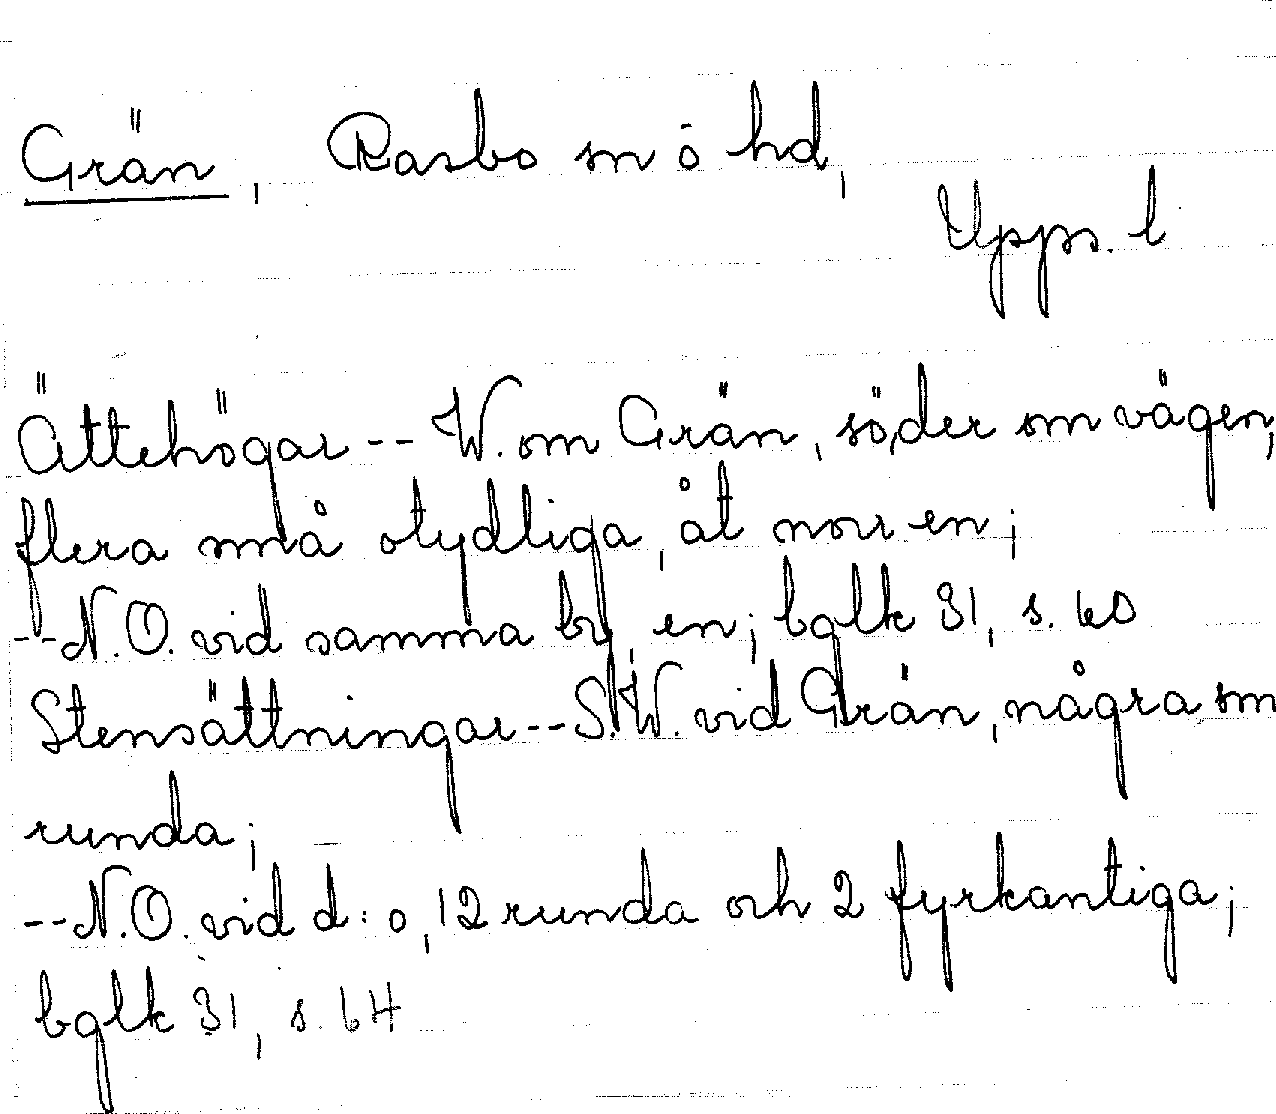 Grän, Rasbo sn o hd,
Upps. l
Ättehögar -- W. om Grän, söder om vägen,
flera små otydliga, åt norr en;
-- N.O. vid samma by, en; bglk 31, s. 60
Stensättningar -- S.W. vid Grän, några sm
runda;
-- N.O. vid d:o, 12 runda och 2 fyrkantiga;
bglk 31, s. 64